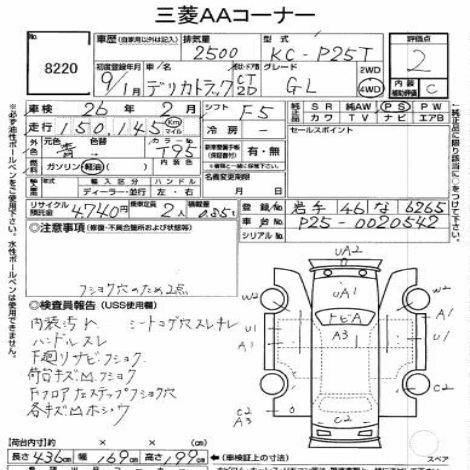 三菱AAコーナー
8220
車歴(自家用以外は記入) 排気量 2500 型式 KC-P25T 評価点 2
初度登録年月 9/1月 車名 デリカトラック CT 2D グレード GL 2WD 4WD 内装 補助評価 C
車検 26年2月 シフト F5 純正品 SR 純AW PS PW
カワ TV ナビ エアB
走行 150,145 Km マイル 冷房 - セールスポイント
外色 元色 青 色替 → T95 新車整備手帳(保証書付) 有・無
燃料 ガソリン 軽油
輸入区分 ハンドル
ディーラー・並行 左・右 名義変更期限 月 日
リサイクル預託金 4740円 乗車定員 2人 積載量 0.85t 登録 岩手 46 な 6265
車台 P25-0020542
シリアル№
注意事項 (修復・不具合箇所および状態等)
フショク穴のため2点
検査員報告 (USS使用欄)
内装汚れ シートコゲ穴スレキレ
ハンドルスレ
下廻リサビフショク
荷台キズ凹フショク
Fフロア左ステップフショク穴
各キズ凹ホシウ
UA2
W2 UA1 W2
U1 バA U1
A1 A3 A1
C2 A3 A2 C2 A3
(荷台内寸)
長さ 436cm 幅 169cm 高さ 199cm ←(車検証上の寸法) スペア
※必ず油性ボールペンをご使用下さい。水性ボールペンは使用できません。
純正品に限り該当に○をつけて下さい。